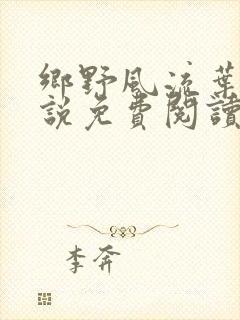 鄉野風流葉
說免費閱讀
李奔